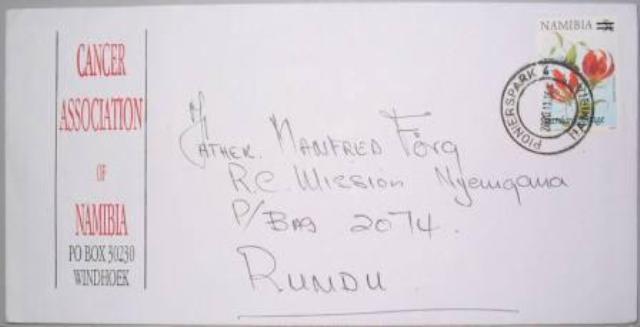 CANCER
ASSOCIATION
OF
NAMIBIA
PO BOX 30230
WINDHOEK
NAMIBIA
PIONIERSPARK
NAMIBIA
FATHER. MANFRED Förg
R.C. Mission Nyemgana
P/BAG 2074.
RUNDU